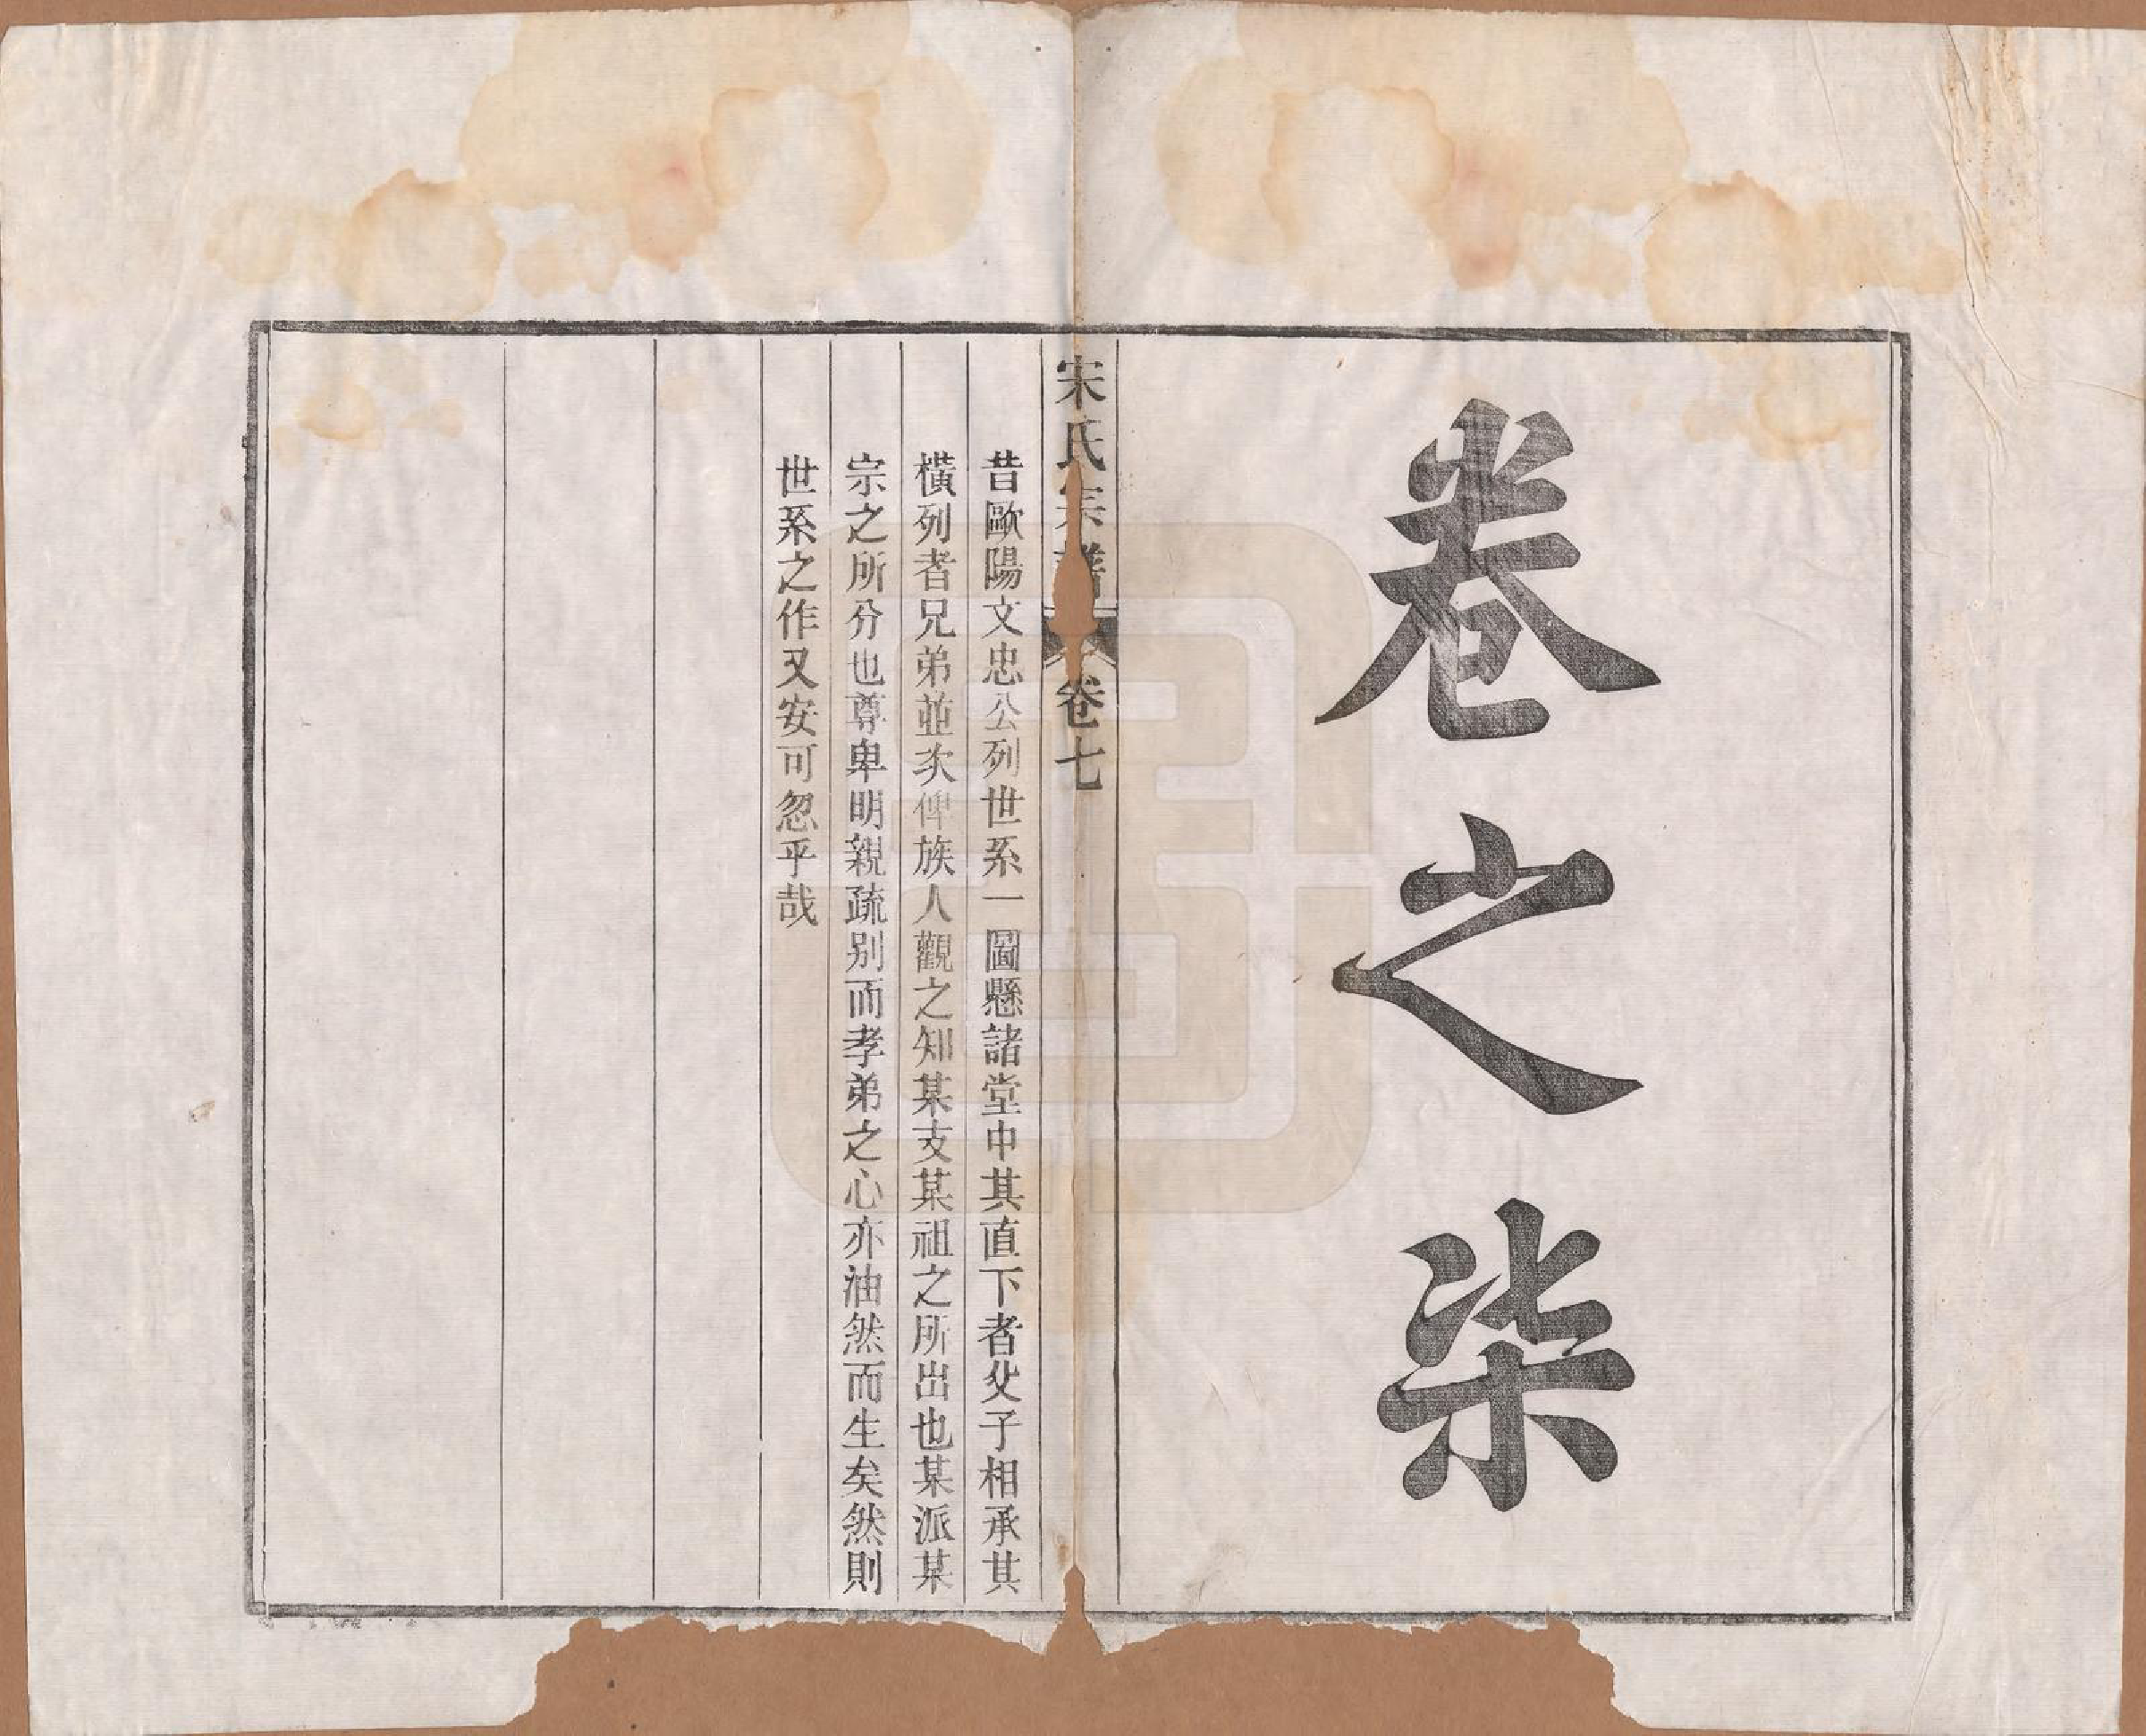 卷之柒
宋氏宗譜 卷七
昔歐陽文忠公列世系一圖懸諸堂中其直下者父子相承其
橫列者兄弟並次俾族人觀之知某支某祖之所出也某派某
宗之所分也尊卑明親疏别而孝弟之心亦油然而生矣然則
世系之作又安可忽乎哉